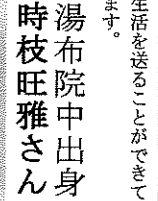 生活を送ることができて
ます。
湯布院中出身
時枝旺雅さん